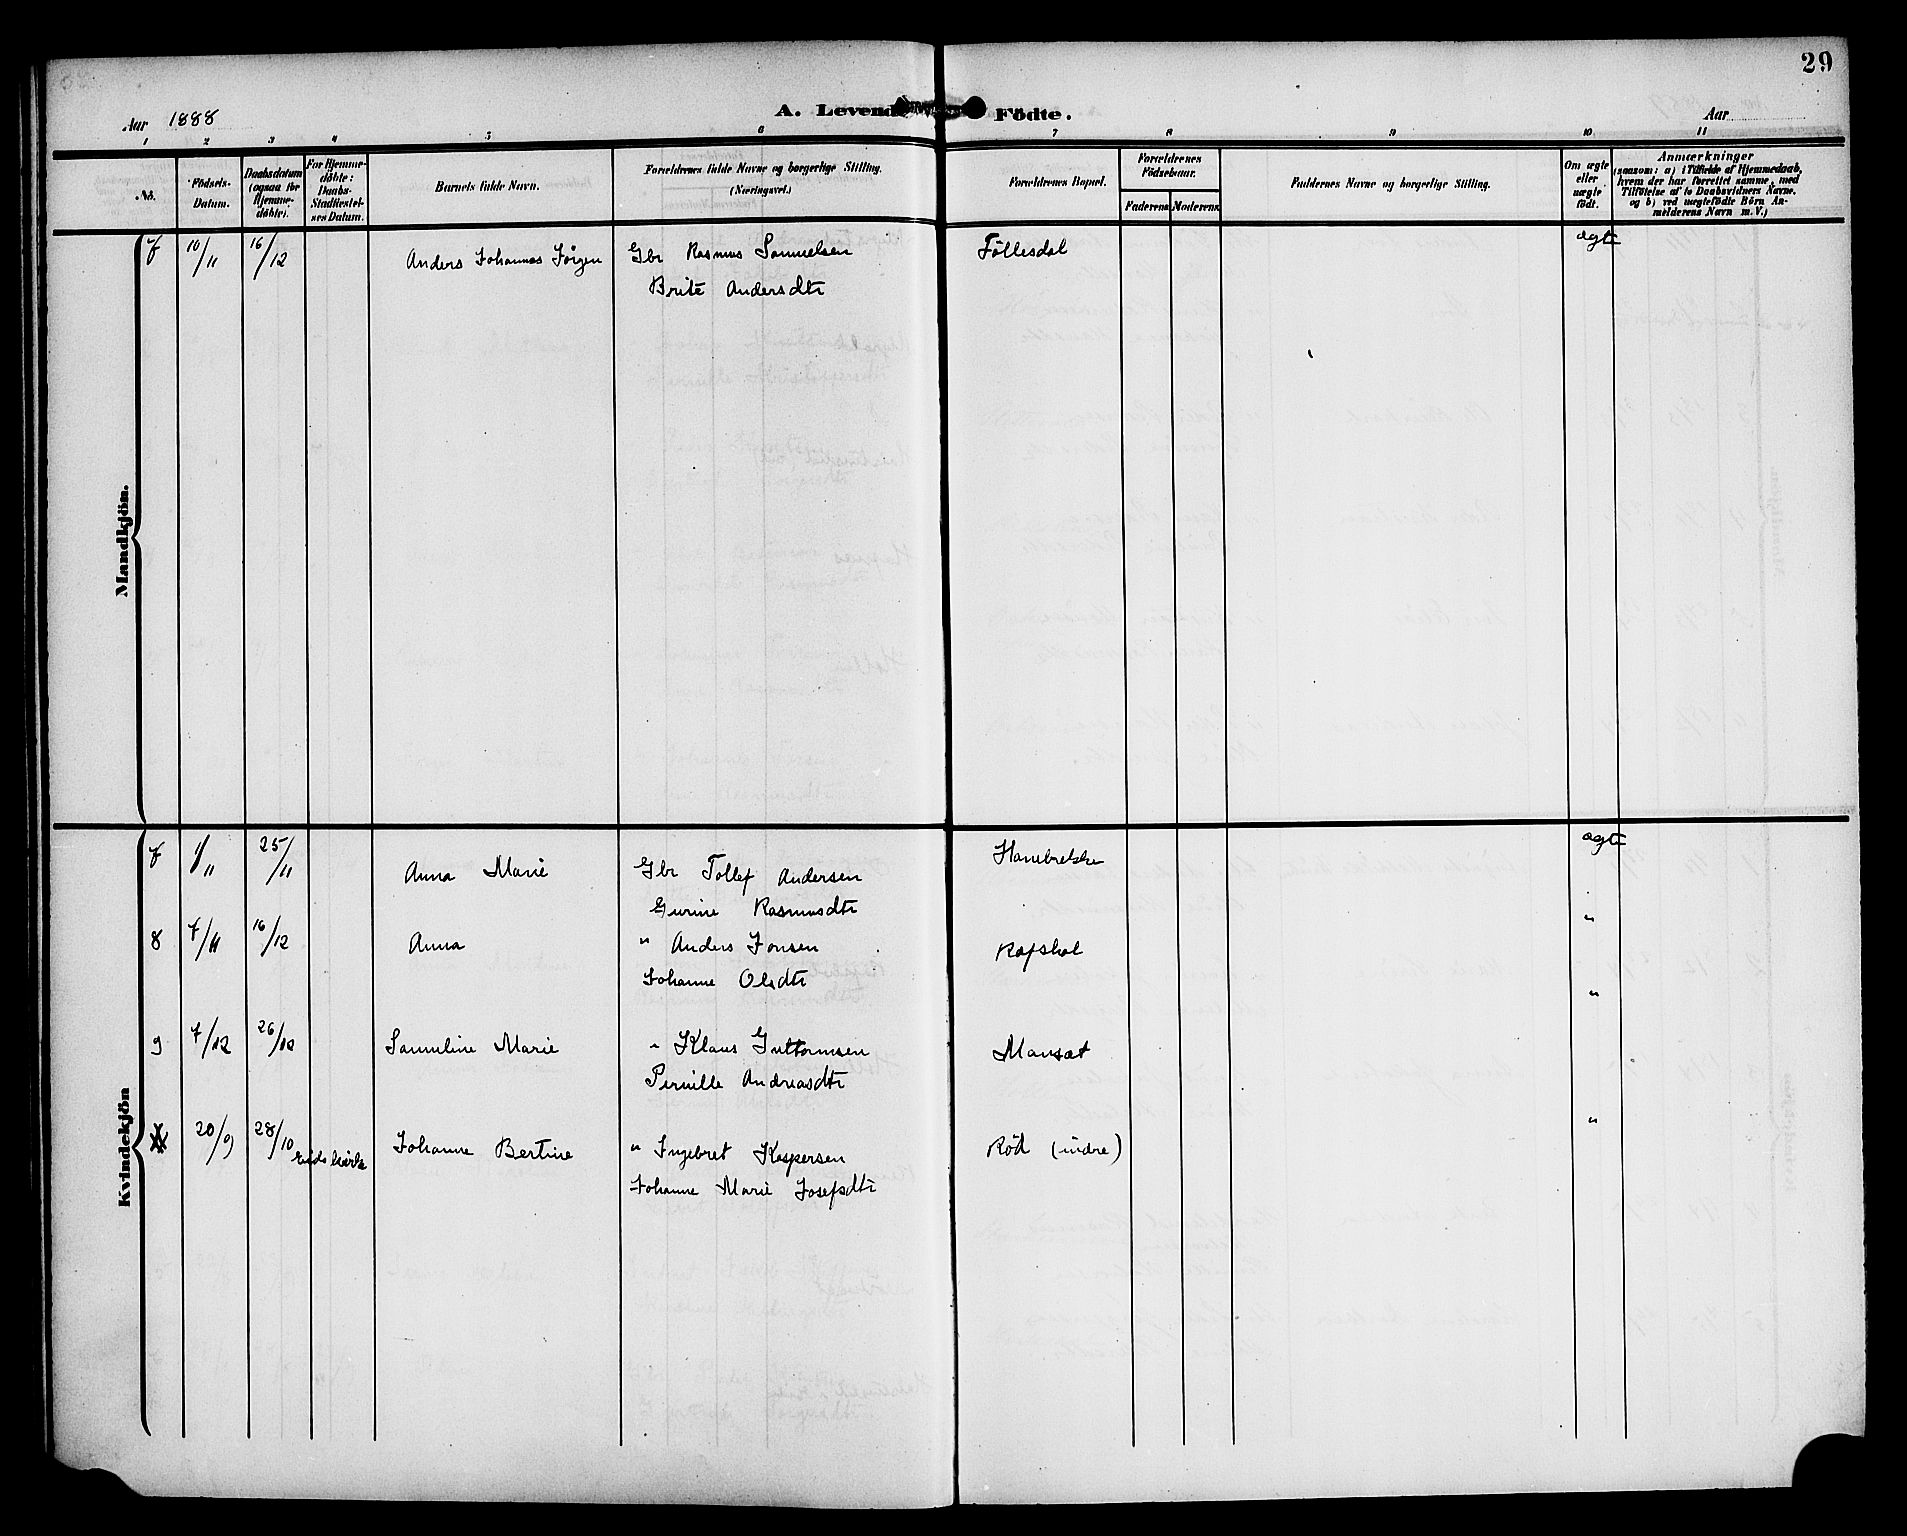 29
Aar 1888 A. Levende Födte. Aar
1 2 3 4 5 6 7 8 9 10 11
No. Födsels-Datum. Daabsdatum (ogsaa for Hjemme-döbte). For Hjemme-döbte: Daabs-Stadfæstel-ses Datum. Barnets fulde Navn. Forældrenes fulde Navne og borgerlige Stilling. (Næringsvei.) Forældrenes Bopæl. Forældrenes Födselsaar. Faderens Moderens Faddernes Navne og borgerlige Stilling. Om ægte eller uægte födt. Anmærkninger (saasom: a) i Tilfælde af Hjemmedaab, hvem der har forrettet samme, med Tilföielse af to Daabsvidners Navne, og b) ved uægtefödte Börn An-melderens Navn m. V.)
Mandkjön.
7 10/11 16/12 Anders Johannes Jörgen Gbr Rasmus Samuelsen Föllesdal ægte
Brite Andersdtr
Kvindekjön
7 1/11 25/11 Anna Marie Gbr Tollef Andersen Hanebrekke ægte
Gurine Rasmusdtr
8 7/11 16/12 Anna " Anders Jonsen Ræfskol "
Johanne Olsdtr
9 7/12 26/12 Samueline Marie " Klaus Guttormsen Mansæt "
Pernille Andreasdtr
20/9 28/10 Eidskirke Johanne Bertine " Ingebret Kaspersen Röd (indre) "
Johanne Marie Josefsdtr